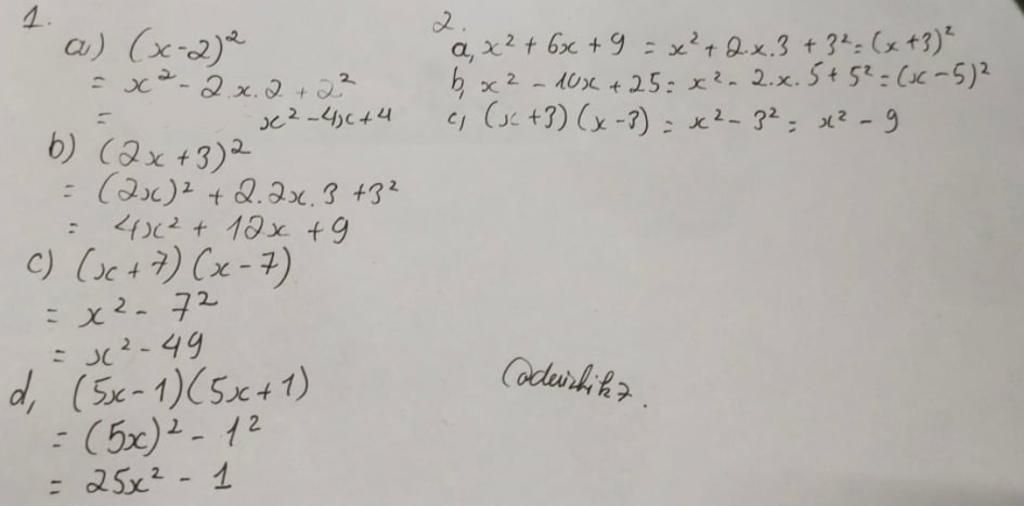 1.
a) (x-2)²
= x² - 2.x.2 + 2²
= x² - 4x + 4
b) (2x+3)²
= (2x)² + 2.2x.3 + 3²
= 4x² + 12x + 9
c) (x+7)(x-7)
= x² - 7²
= x² - 49
d, (5x-1)(5x+1)
= (5x)² - 1²
= 25x² - 1
2.
a, x² + 6x + 9 = x² + 2.x.3 + 3² = (x+3)²
b, x² - 10x + 25 = x² - 2.x.5 + 5² = (x-5)²
c, (x+3)(x-3) = x² - 3² = x² - 9